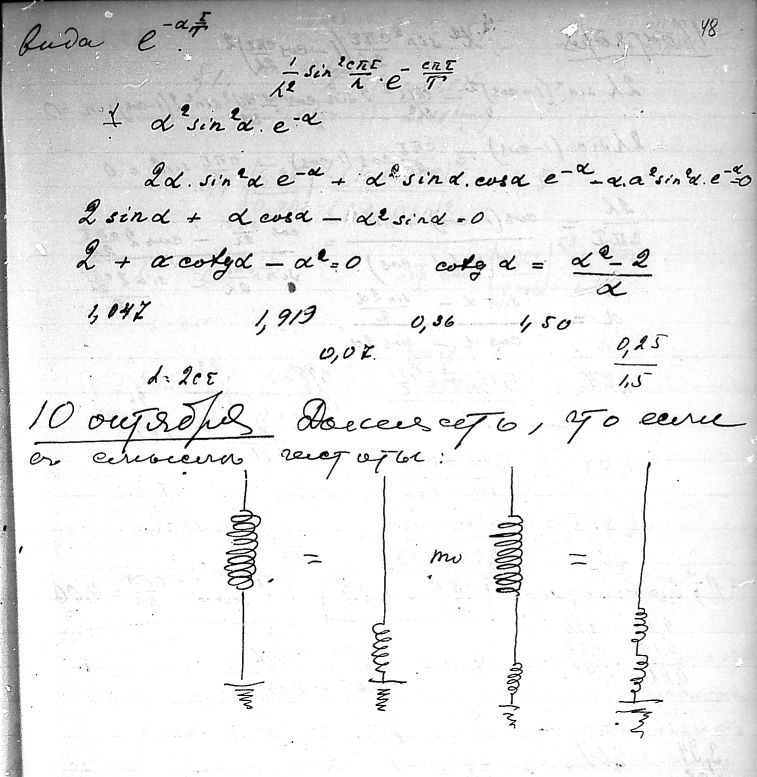 48
вида e^{-α τ/T}
1/λ² sin² cπτ/λ · e^{- cπτ/T}
α² sin²α · e^{-α}
2α · sin²α e^{-α} + α² sinα · cosα e^{-α} - α · α² sin²α · e^{-α} = 0
2 sinα + α cosα - α² sinα = 0
2 + α cotgα - α² = 0 cotg α = (α² - 2)/α
1,047 1,919 0,36 1,50
0,07 0,25/1,5
α = 2cτ
10 октября Доказать, что если
в смысле частоты:
= то =